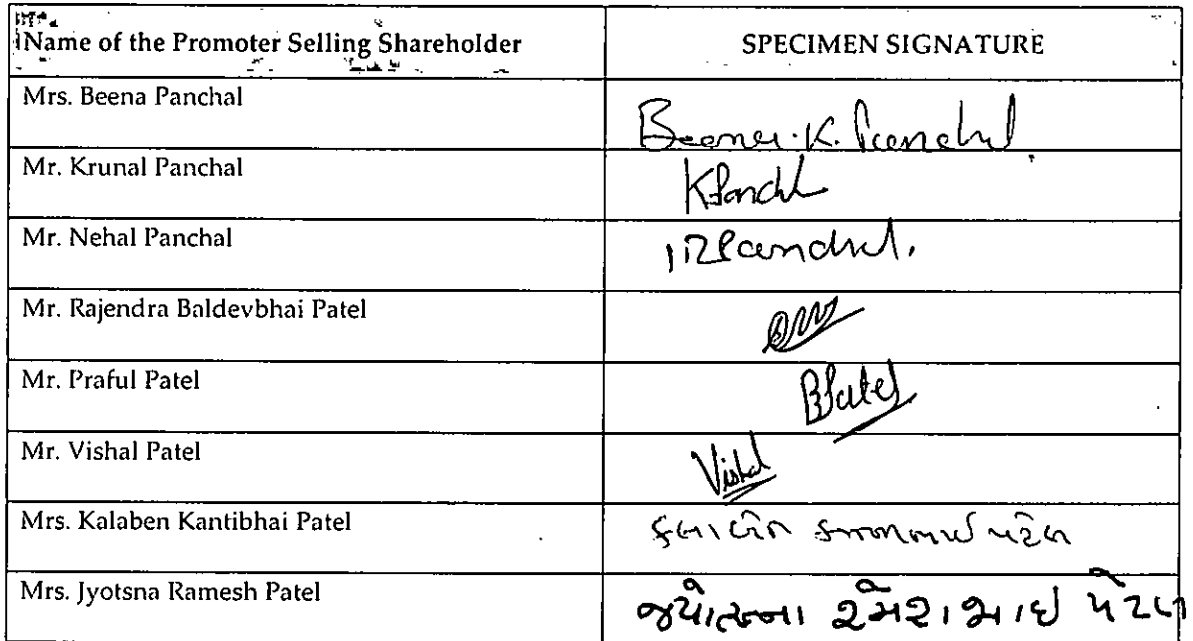 Name of the Promoter Selling Shareholder SPECIMEN SIGNATURE
Mrs. Beena Panchal Beena. K. Panchal
Mr. Krunal Panchal KPanchal
Mr. Nehal Panchal Panchal.
Mr. Rajendra Baldevbhai Patel
Mr. Praful Patel PPatel
Mr. Vishal Patel Vishal
Mrs. Kalaben Kantibhai Patel કલાબેન પટેલ
Mrs. Jyotsna Ramesh Patel જયોત્સના રમેશભાઇ પટેલ